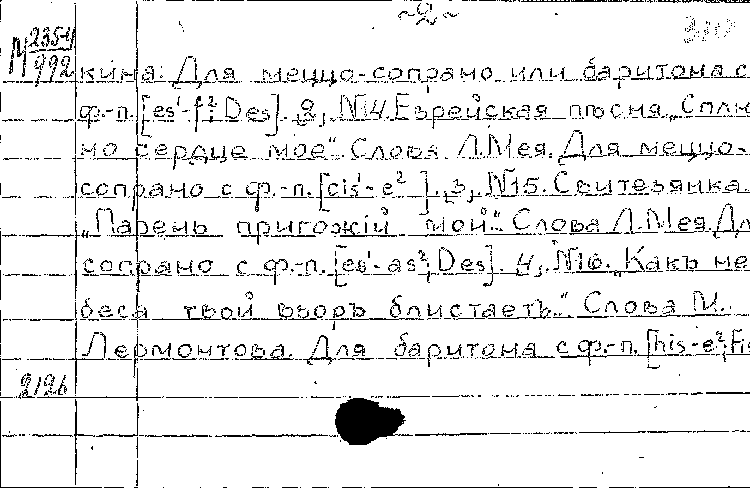 ~2~
М 235-4
992
кина. Для меццо-сопрано или баритона с
ф.-п. [es¹-f²; Des]. 2, №14. Еврейская пѣсня „Сплю
но сердце мое“. Слова Л.Мея. Для меццо-
сопрано с ф.-п. [cis¹-e² ]. 3, №15. Свитезянка.
„Парень пригожiй мой“. Слова Л.Мея. Дл
сопрано с ф.-п. [es¹-as²; Des]. 4, №16. „Какъ не
беса твой взоръ блистаетъ“. Слова М.
Лермонтова. Для баритона с ф.-п. [his-e²; Fis
2126